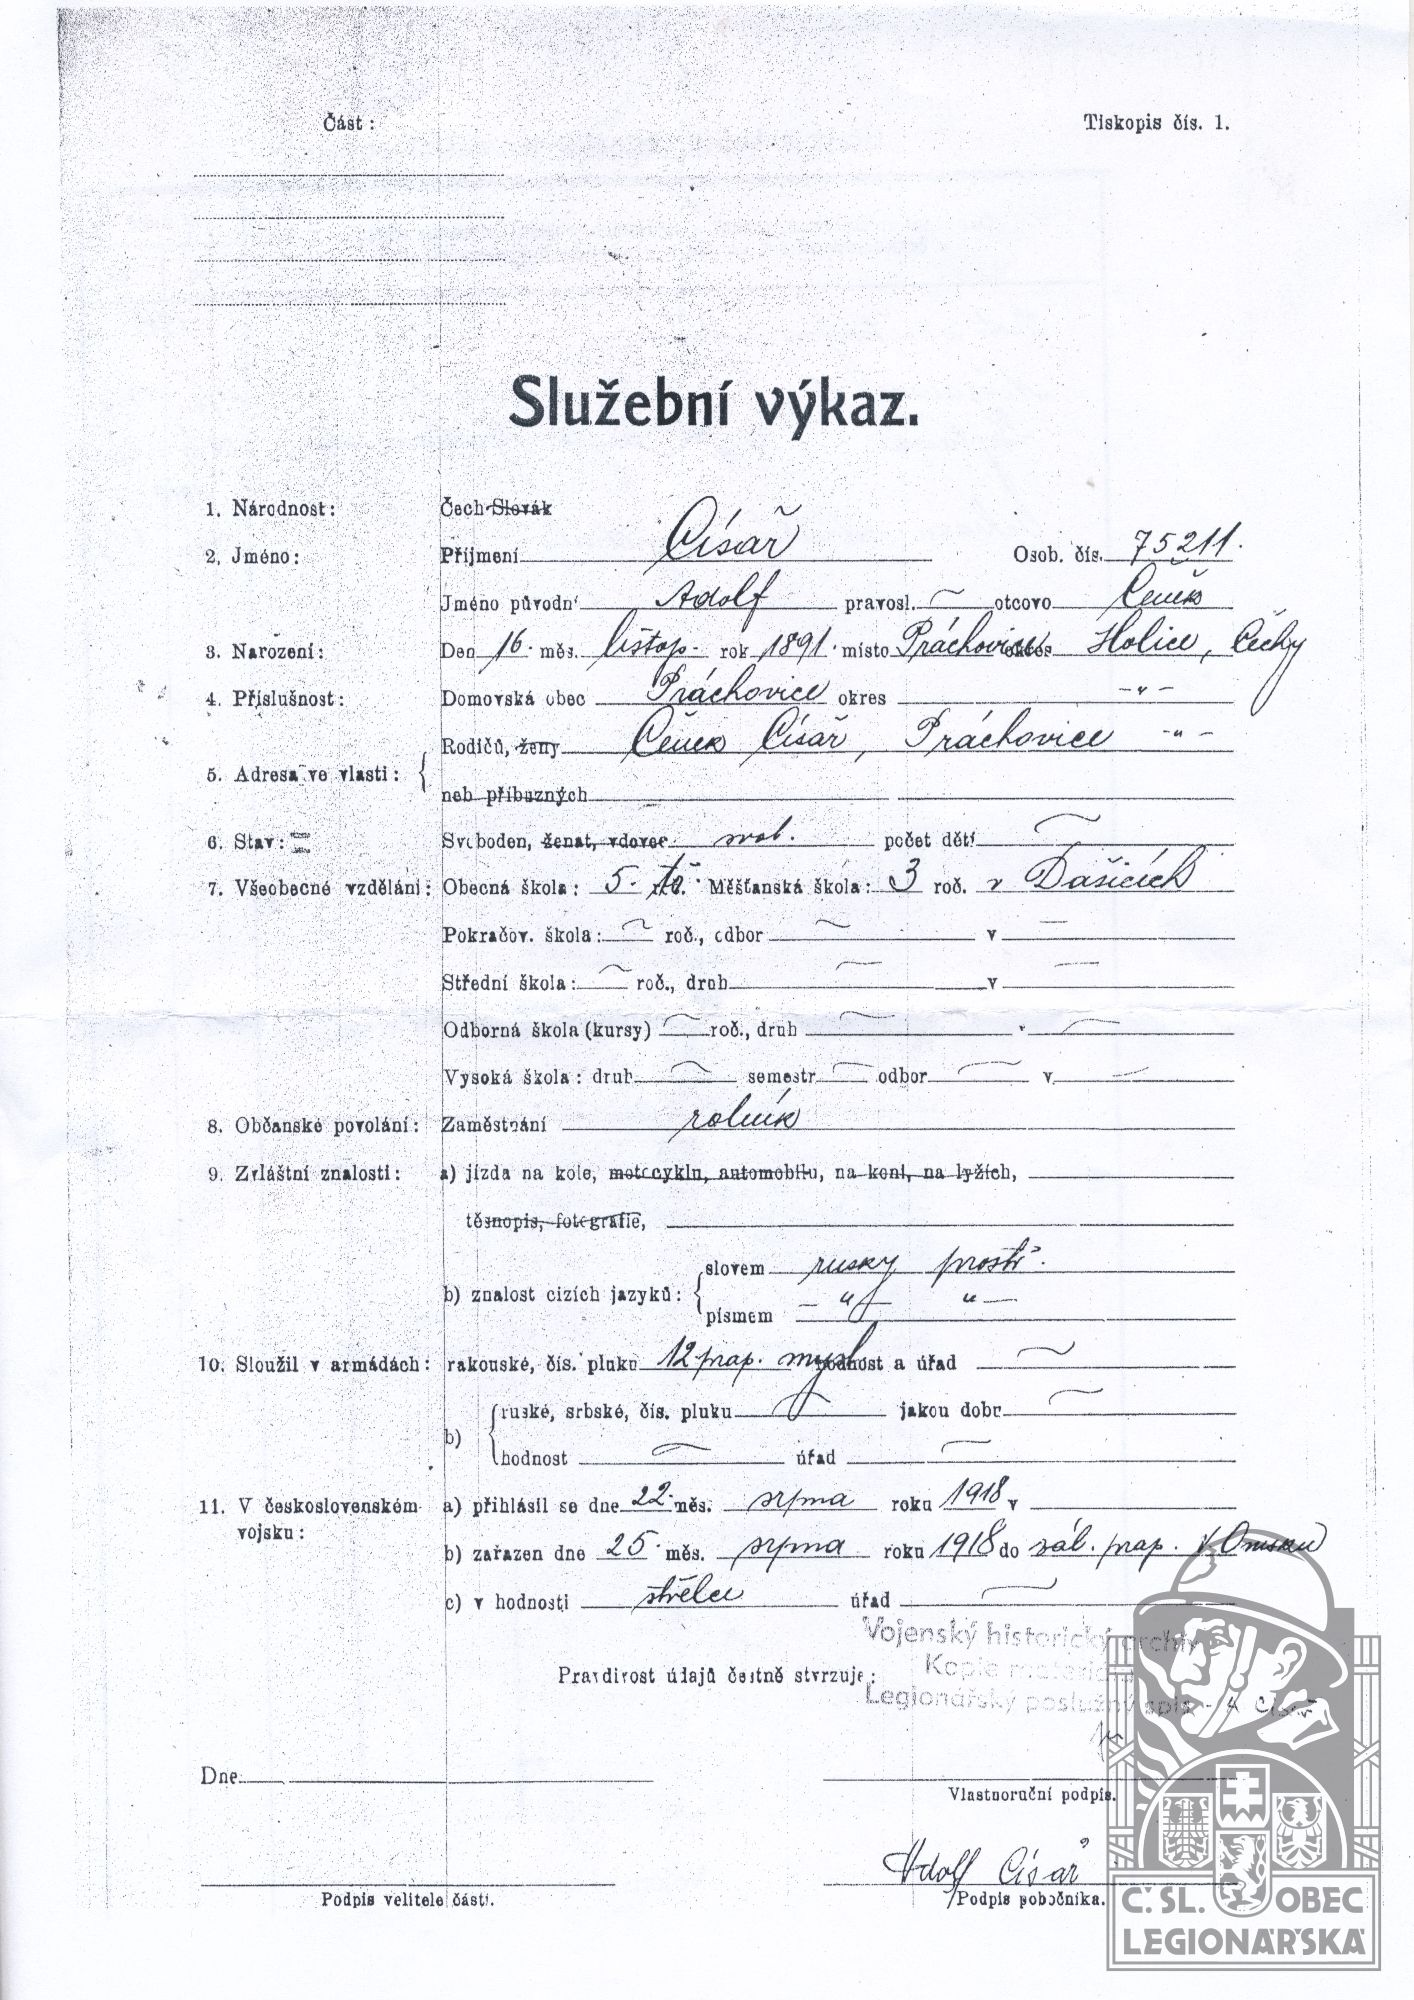 Část :
Tiskopis čís. 1.
Služební výkaz.
1. Národnost : Čech Slovák
2. Jméno : Příjmení Císař Osob. čís. 75211.
Jméno původní Adolf pravosl. — otcovo Čeněk
3. Narození : Den 16. měs. listop. rok 1891. místo Práchovice okres Holice, Čechy
4. Příslušnost : Domovská obec Práchovice okres —"—
5. Adresa ve vlasti : Rodičů, ženy Čeněk Císař, Práchovice —"—
neb příbuzných
6. Stav : Svoboden, ženat, vdovec svob. počet dětí —
7. Všeobecné vzdělání : Obecná škola : 5. tř. Měšťanská škola : 3 roč. v Dašicích
Pokračov. škola : — roč., odbor — v —
Střední škola : — roč., druh — v —
Odborná škola (kursy) — roč., druh — v —
Vysoká škola : druh — semestr — odbor — v —
8. Občanské povolání : Zaměstnání rolník
9. Zvláštní znalosti : a) jízda na kole, motocyklu, automobilu, na koni, na lyžích,
těsnopis, fotografie,
b) znalost cizích jazyků : slovem rusky prostř.
písmem —"— "—
10. Sloužil v armádách : rakouské, čís. pluku 12 prap. mysl. hodnost a úřad —
b) ruské, srbské, čís. pluku — jakou dobu —
hodnost — úřad —
11. V československém vojsku : a) přihlásil se dne 22. měs. srpna roku 1918 v
b) zařazen dne 25. měs. srpna roku 1918 do zál. prap. v Omsku
c) v hodnosti střelce úřad —
Vojenský historický archiv
Kopie materiálu
Legionářský poslužný spis - A Císař
Pravdivost údajů čestně stvrzuje :
Dne
Vlastnoruční podpis.
Adolf Císař
Podpis velitele části.
Podpis pobočníka.
Č. SL. OBEC
LEGIONÁŘSKÁ